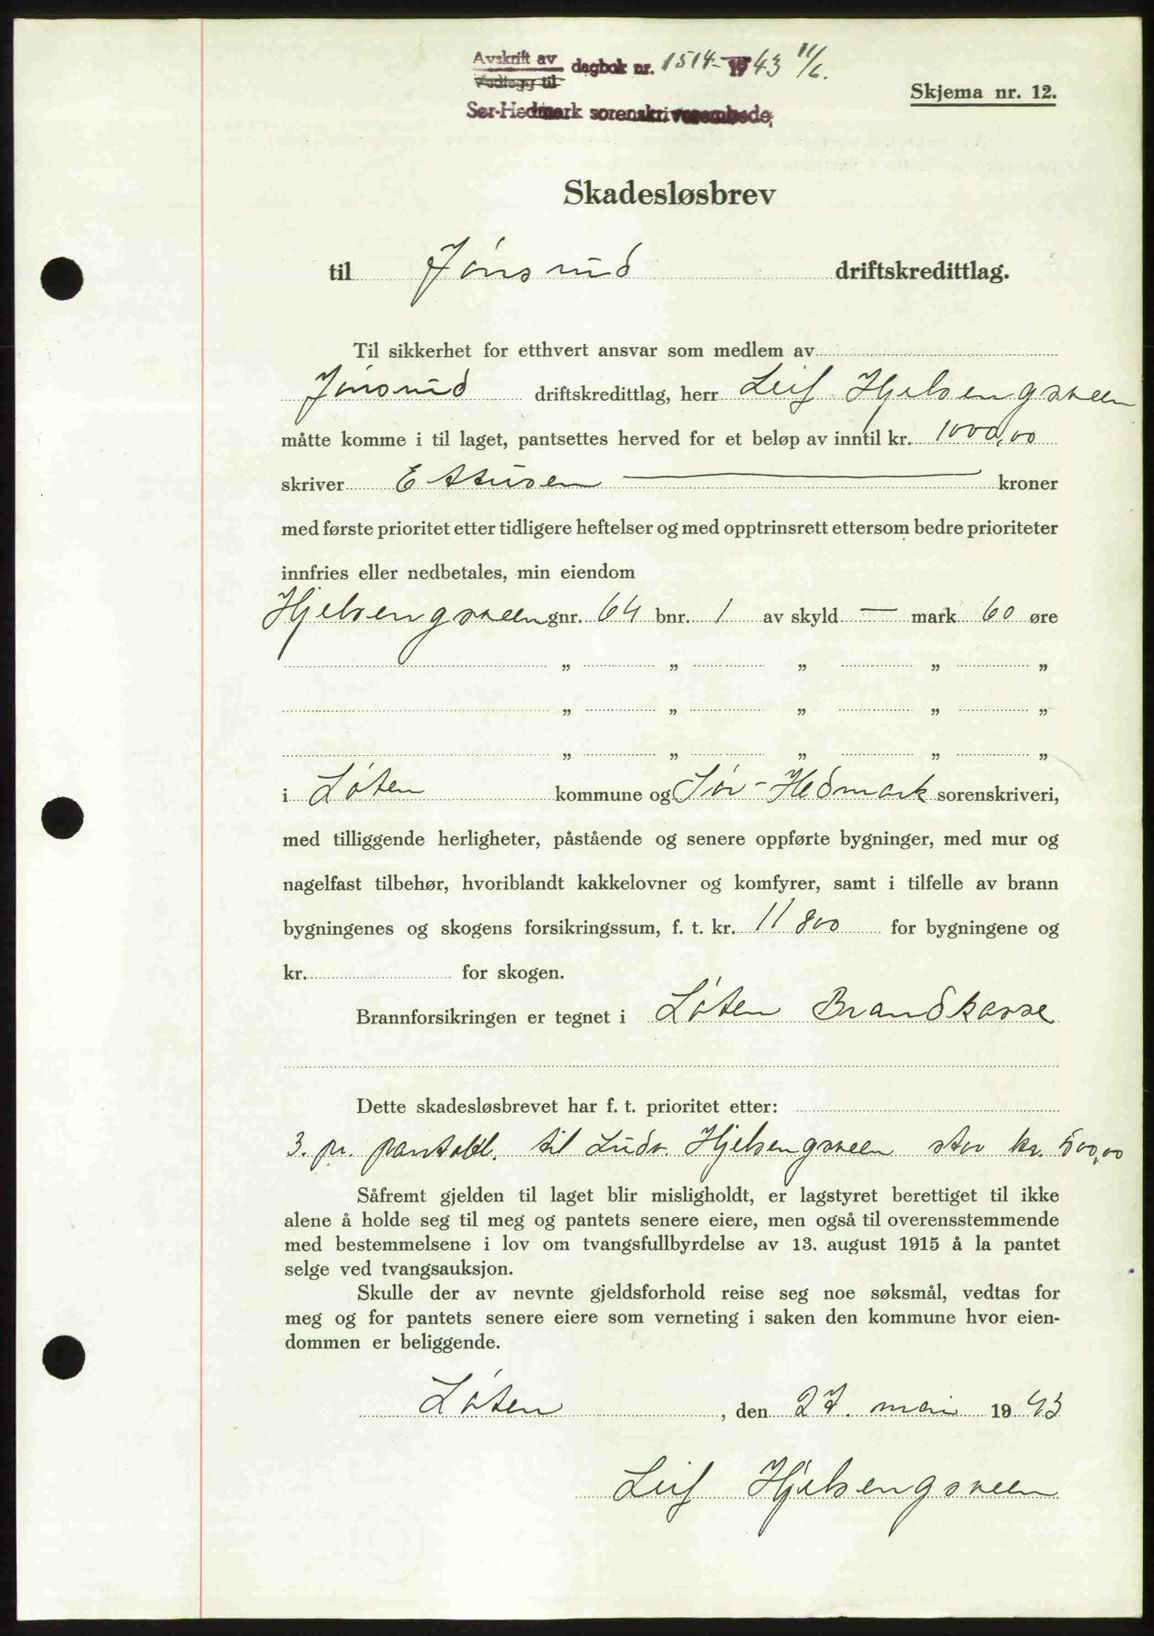 Avskrift av
Vedlegg til
dagbok nr. 1514- 1943 11/6.
Sør-Hedmark sorenskriverembede,
Skjema nr. 12.
Skadesløsbrev
til Jønsrud driftskredittlag.
Til sikkerhet for etthvert ansvar som medlem av
Jønsrud driftskredittlag, herr Leif Hjelsengsveen
måtte komme i til laget, pantsettes herved for et beløp av inntil kr. 1000,00
skriver Ettusen — kroner
med første prioritet etter tidligere heftelser og med opptrinsrett ettersom bedre prioriteter
innfries eller nedbetales, min eiendom
Hjelsengsveen gnr. 64 bnr. 1 av skyld — mark 60 øre
„ „ „ „ „
„ „ „ „ „
„ „ „ „ „
i Løten kommune og Sør-Hedmark sorenskriveri,
med tilliggende herligheter, påstående og senere oppførte bygninger, med mur og
nagelfast tilbehør, hvoriblandt kakkelovner og komfyrer, samt i tilfelle av brann
bygningenes og skogens forsikringssum, f. t. kr. 11 800 for bygningene og
kr. for skogen.
Brannforsikringen er tegnet i Løten Brandkasse
Dette skadesløsbrevet har f. t. prioritet etter:
3. pr. pantobl. til Ludv. Hjelsengsveen stor kr. 500,00
Såfremt gjelden til laget blir misligholdt, er lagstyret berettiget til ikke
alene å holde seg til meg og pantets senere eiere, men også til overensstemmende
med bestemmelsene i lov om tvangsfullbyrdelse av 13. august 1915 å la pantet
selge ved tvangsauksjon.
Skulle der av nevnte gjeldsforhold reise seg noe søksmål, vedtas for
meg og for pantets senere eiere som verneting i saken den kommune hvor eien-
dommen er beliggende.
Løten, den 27. mai 1943
Leif Hjelsengsveen